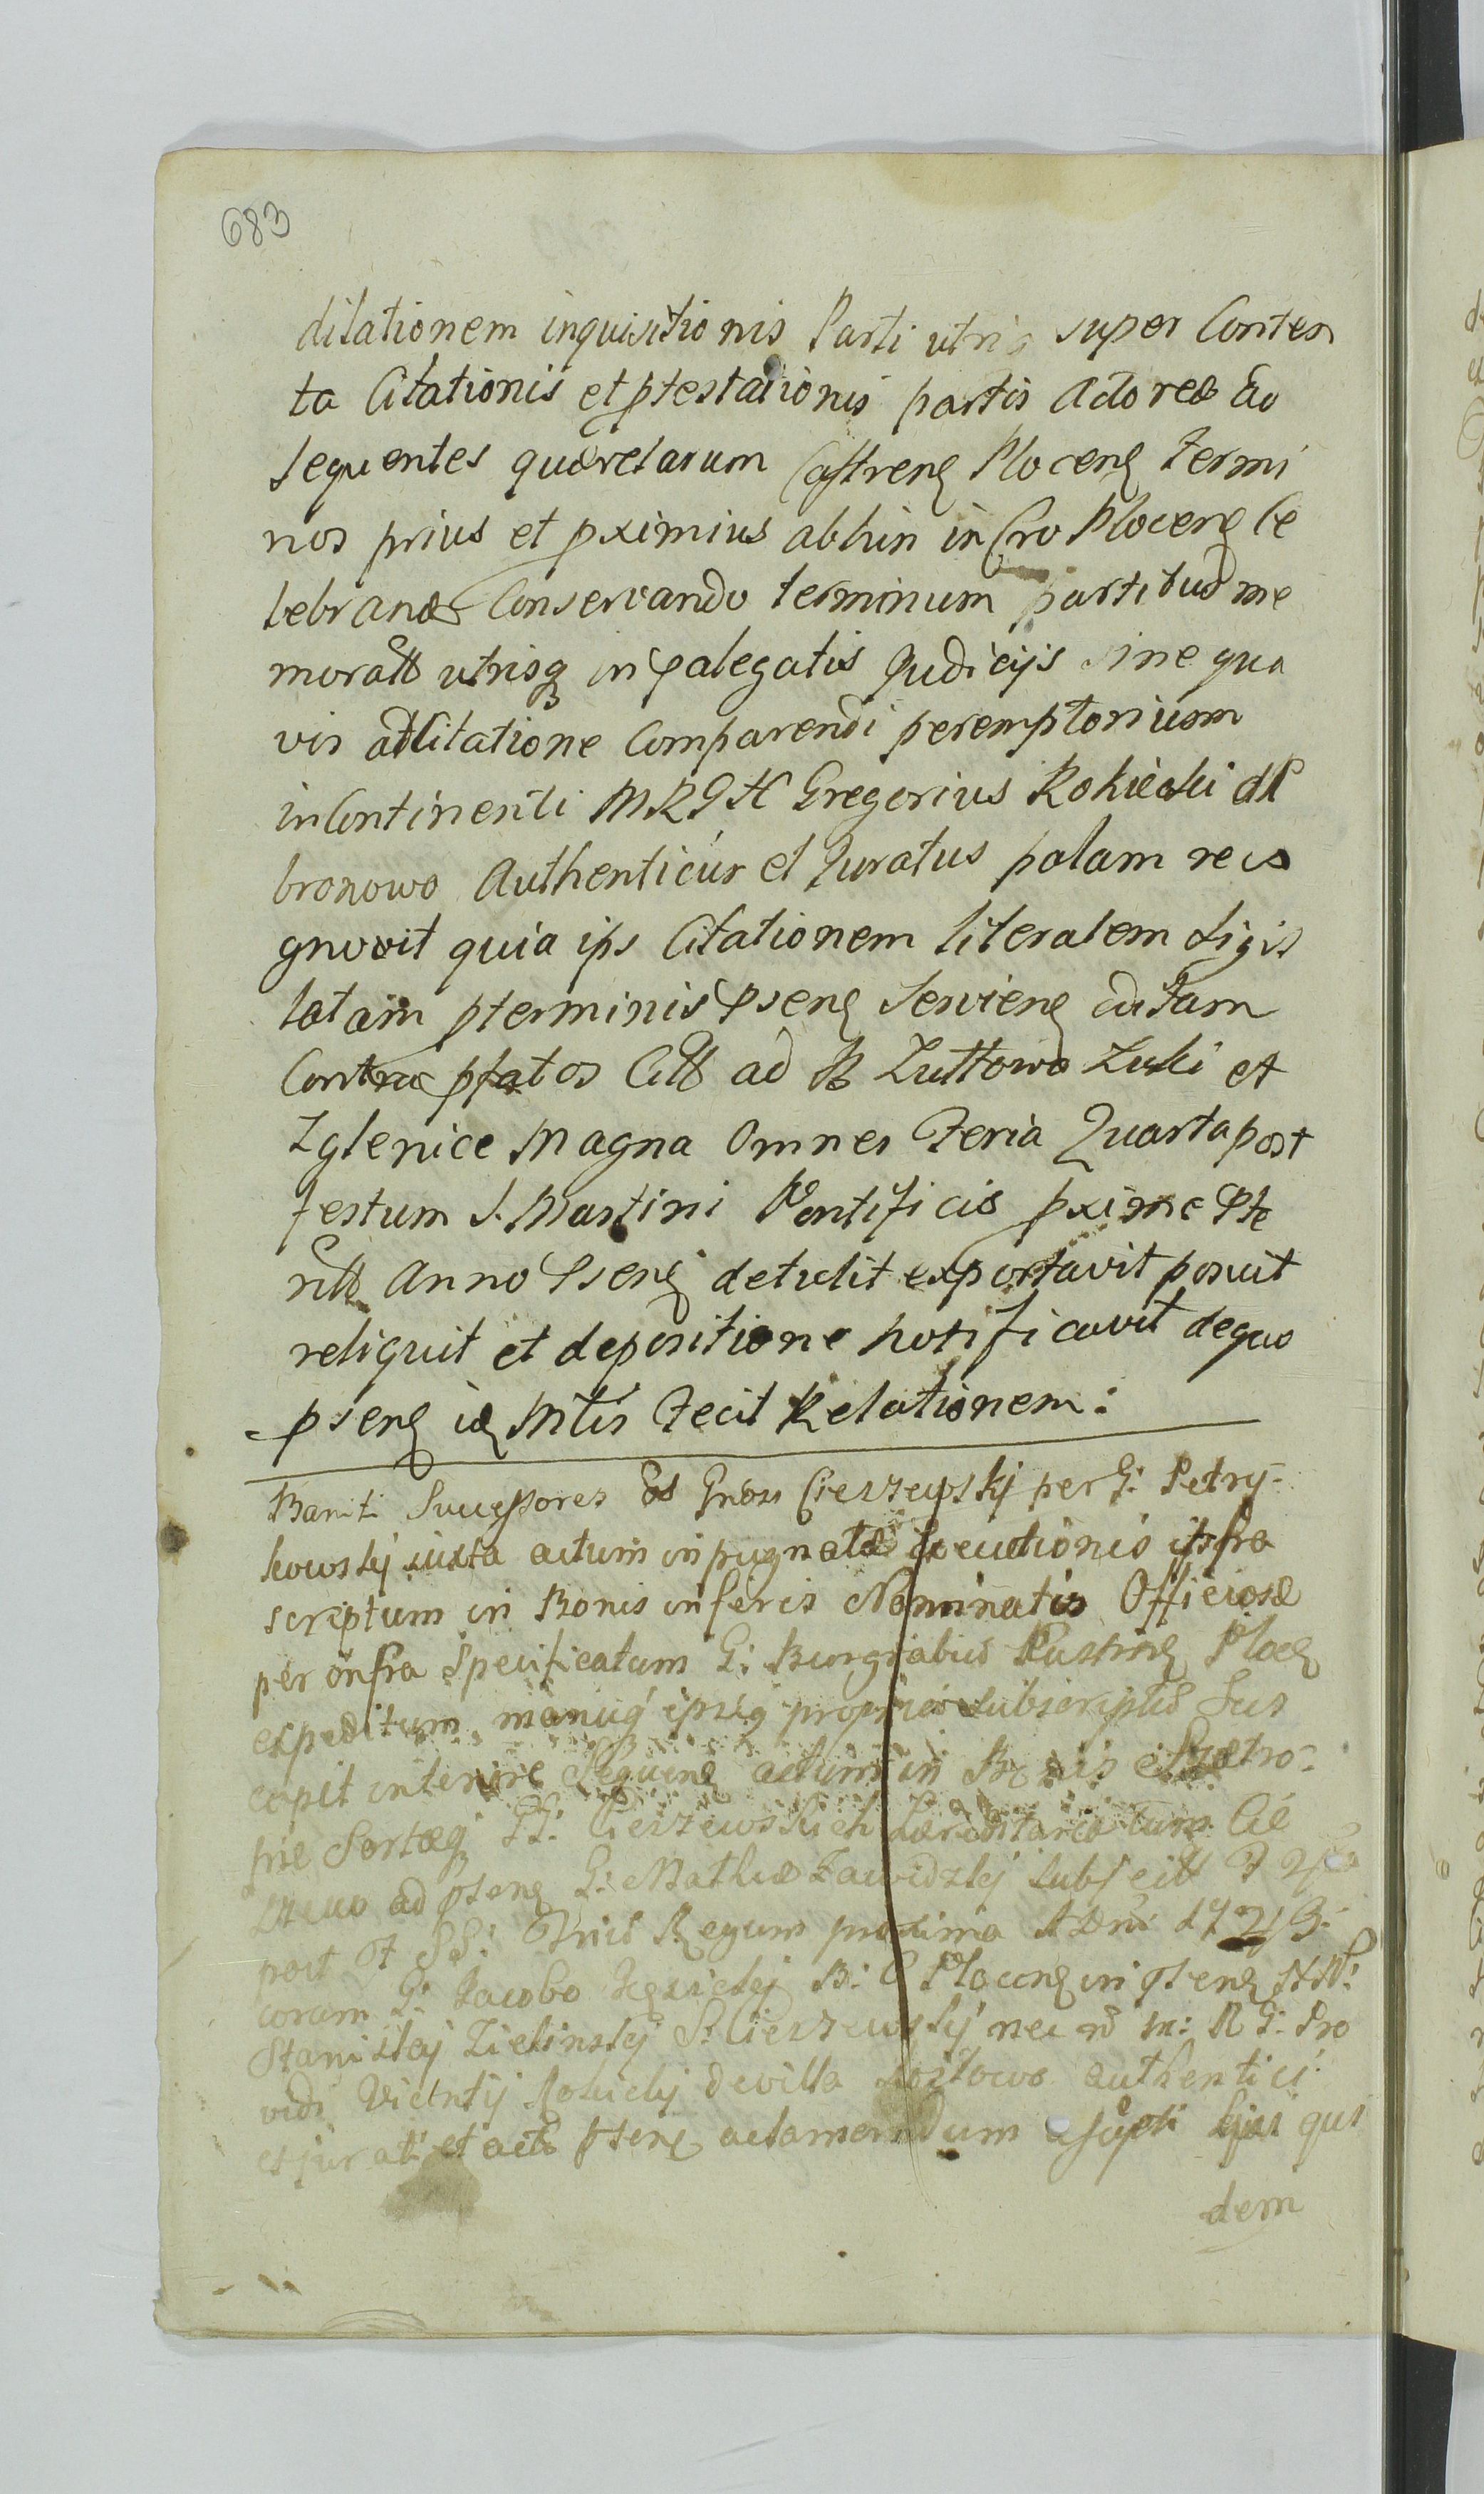 683
dilationem inquisitionis Parti utriq super Conten
ta Citationis et ptestationis partis Actoreæ ad
sequentes quærelarum Castreng Ploceng Termi
nos prius et pximius abhin in Cro Ploceng ce
lebrand Conservando terminum partibus me
moratt utrisq in palegatis Judicijs sine qua
vis adCitatione Comparendi peremptorium
inContinenti MRGH Gregorius Rokicki de
bronowo Authenticus et Juratus palam reco
gnovit quia ips Citationem literalem sigil
latam pterminis Pseng Servieng editam
Contra pfatos Citt ad B Luttowo Luki et
Zglenice Magna Omnes Feria Quarta post
festum S. Martini Pontificis pxime Pte
ritt Anno Pseng detulit exportavit posuit
reliquit et depositione notificavit dequo
pseng id Mtis Fecit Relationem:
Banit: Successores Gnosi Cieszewskj per G: Petry-
kowskj iuxta actum inpugnatæ Executionis infra
scriptum in Bonis inferis Nominatis Officiose
per infra Specificatum G: Burgrabiu Castrens Ploc
expeditum manuq ipsig propria subscriptus Sus
cepit intenore Sequeng actum in Bonis
Sortæq GG: Cieszewskich Læreditariæ tum Cie
szewo ad pseng G: Mathiæ Zawidzkj
post F SS: Trium Regum proxima A Dni 1723:
coram G: Jacobo B: C Ploceng in pseng
Stanislaj Zielinskj S: Cieszewskj nec n M: R G: Pro
vidi Vicentij Rokickj de villa authentici
et jurati et actu pseng actamendum qui
dem